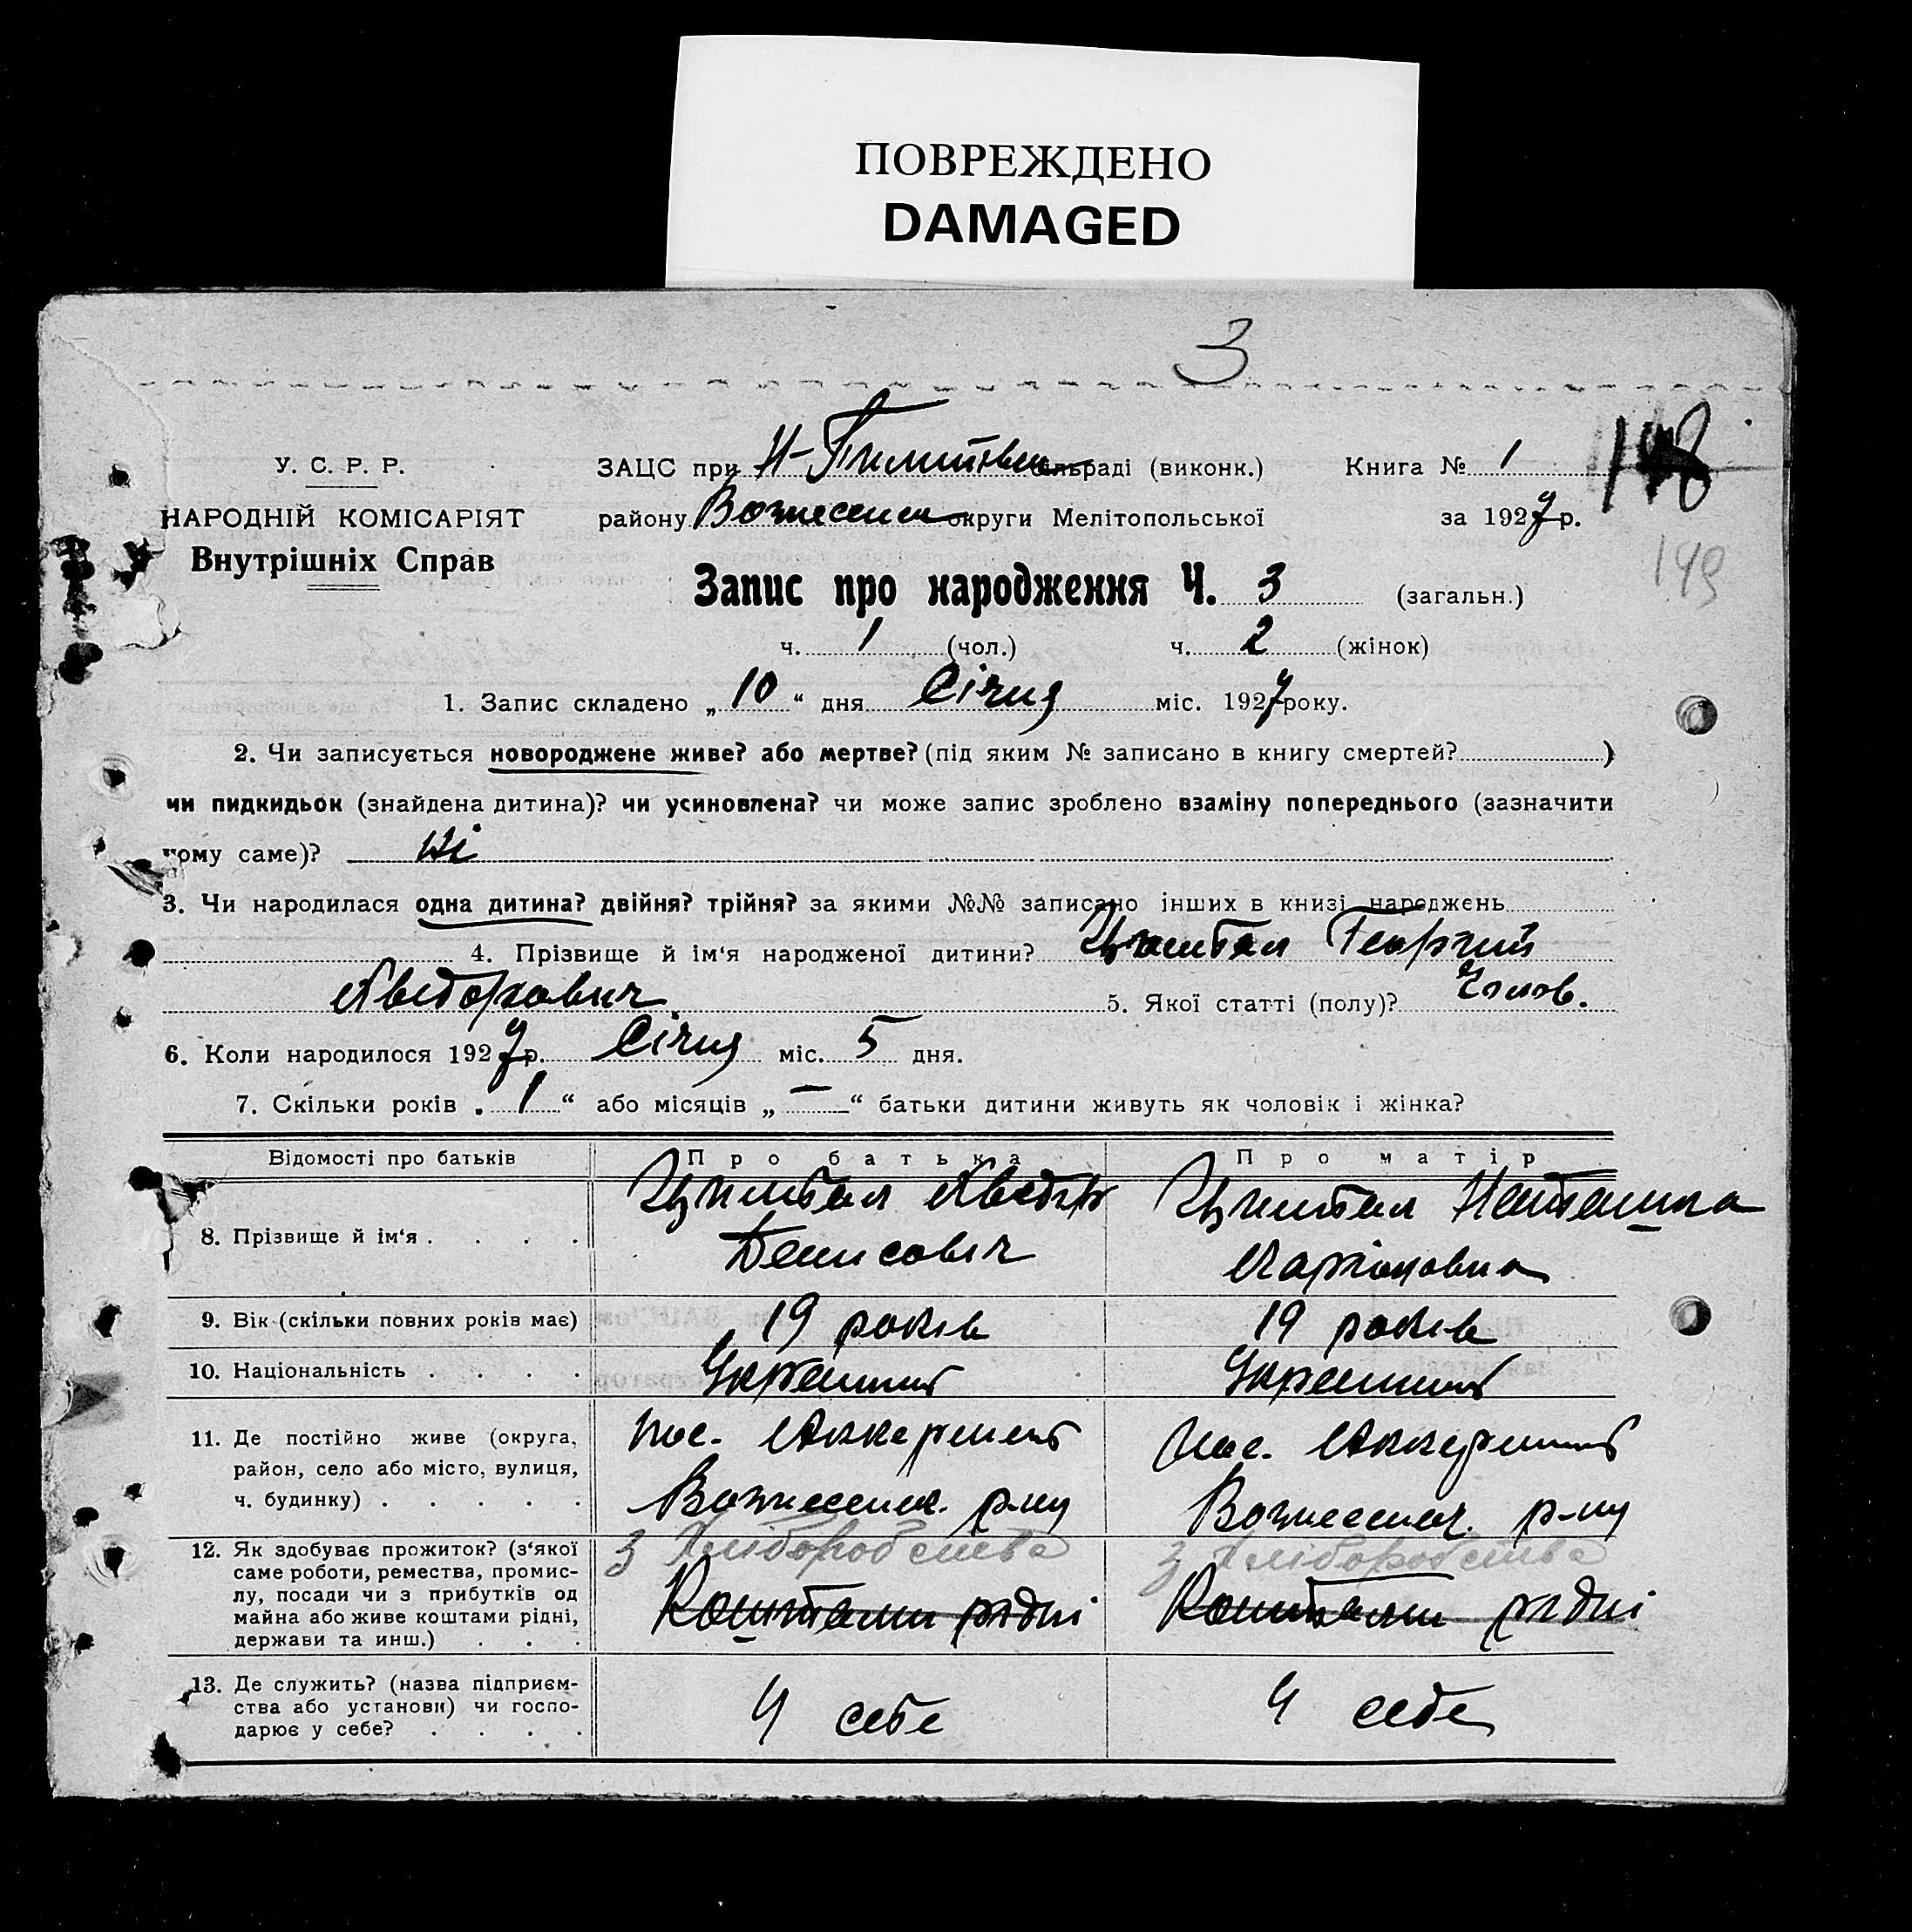 ПОВРЕЖДЕНО
DAMAGED
3
У. С. Р. Р.
НАРОДНІЙ КОМІСАРІЯТ
Внутрішніх Справ
ЗАЦС при Н- раді (виконк.) Книга № 1
148
району Вознесенск округи Мелітопольської за 1927 р.
149
Запис про народження Ч. 3 (загальн.)
ч. 1 (чол.) ч. 2 (жінок)
1. Запис складено „ 10 “ дня Січня міс. 1927 року.
2. Чи записується новороджене живе? або мертве? (під яким № записано в книгу смертей? )
чи пидкидьок (знайдена дитина)? чи усиновлена? чи може запис зроблено взаміну попереднього (зазначити
чому саме)? Ні
3. Чи народилася одна дитина? двійня? трійня? за якими №№ записано інших в книзі народжень
4. Прізвище й ім‘я народженої дитини? Георгий
5. Якої статті (полу)? Чолов.
6. Коли народилося 1927 р. Січня міс. 5 дня.
7. Скільки років „ 1 “ або місяців „ — “ батьки дитини живуть як чоловік і жінка?
Відомості про батьків Про батька Про матір
8. Прізвище й ім‘я . . . .
Денисович
9. Вік (скільки повних років має) 19 років 19 років
10. Національність . . . . Украинець Украинець
11. Де постійно живе (округа, район, село або місто, вулиця, ч. будинку) . . . . .
пос. Аккермень пос. Аккермень
Вознесенск. р-ну Вознесенск. р-ну
12. Як здобуває прожиток? (з‘якої
саме роботи, ремества, промис-
лу, посади чи з прибутків од
майна або живе коштами рідні,
держави та инш.) . . .
З Хліборобства З Хліборобства
Коштами рідні Коштами рідні
13. Де служить? (назва підприєм-
ства або установи) чи госпо-
дарює у себе? . . . .
У себе У себе